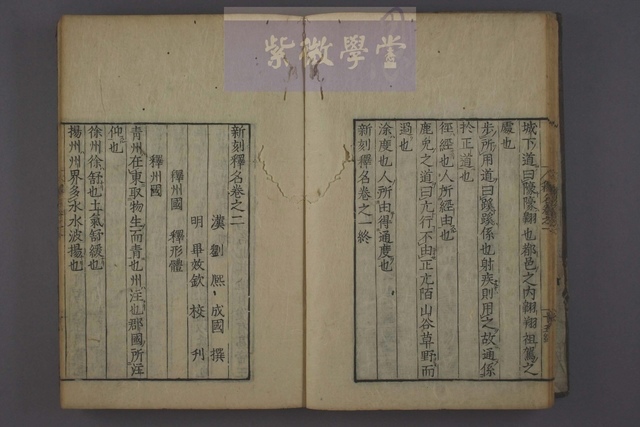 紫微學堂
城下道曰㙱㙱翱也都邑之内翱翔祖駕之
處也
步所用道曰蹊蹊係也射疾則用之故還係
於正道也
徑經也人所經由也
鹿兔之道曰亢行不由正亢陌山谷草野而
過也
涂度也人所由得通度也
新刻釋名卷之一終
新刻釋名卷之二
漢 劉熈 成國 撰
明 畢效欽 校刋
釋州國 釋形體
釋州國
青州在東取物生而青也州注也郡國所注
仰也
徐州徐舒也土氣舒緩也
揚州州界多水水波揚也